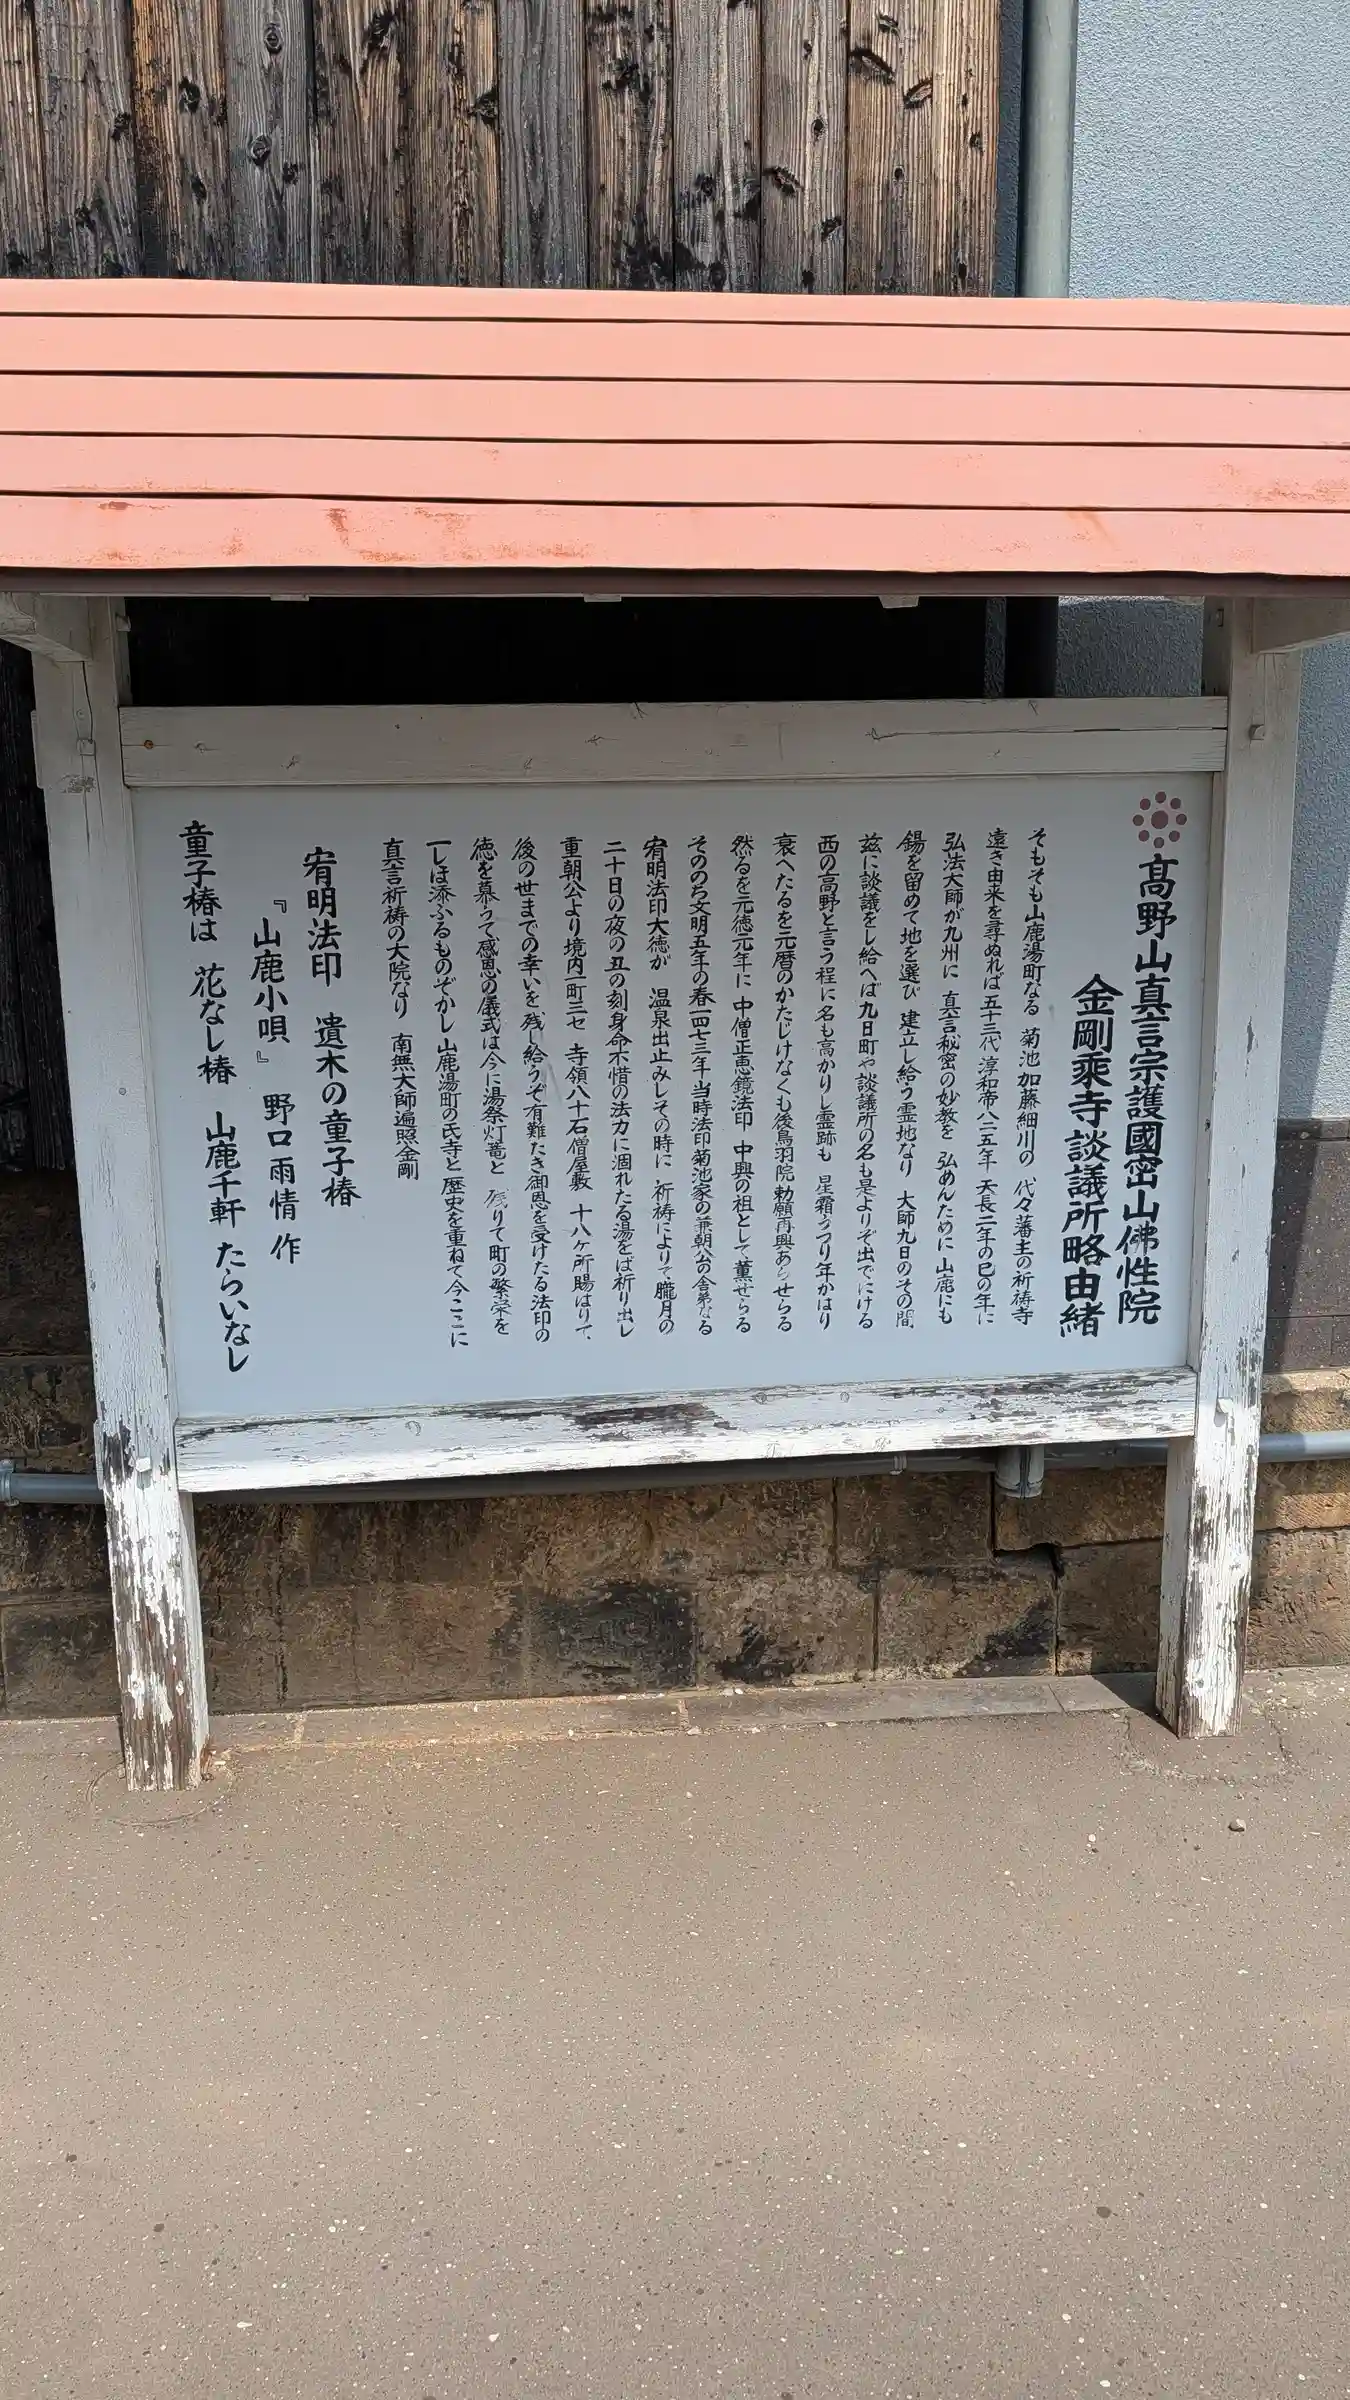 高野山真言宗護國密山佛性院
金剛乘寺談議所略由緒
そもそも山鹿湯町なる 菊池加藤細川の 代々藩主の祈祷寺
遠き由来を尋ぬれば五十三代 淳和帝八二五年 天長二年の巳の年に
弘法大師が九州に 真言秘密の妙教を 弘めんために 山鹿にも
錫を留めて地を選び 建立し給う霊地なり 大師九日のその間
玆に談議をし給へば九日町や談議所の名も是よりぞ出でにける
西の高野と言う程に名も高かりし霊跡も 星霜うつり年かはり
衰へたるを元暦のかたじけなくも後鳥羽院勅願再興あらせらる
然るを元徳元年に 中僧正恵鏡法印 中興の祖として、薫せらる
そののち文明五年の春一四七三年当時法印菊池家の兼朝公の舎弟なる
宥明法印大徳が 温泉出止みしその時に 祈祷によりて、朧月の
二十日の夜の丑の刻身命不惜の法力に涸れたる湯をば祈り出し
重朝公より境内一町三セ 寺領八十石僧屋敷 十八ヶ所賜はりて、
後の世までの幸いを残し給うぞ有難たき御恩を受けたる法印の
徳を慕うて感恩の儀式は今に湯祭灯篭と 残りて町の繁栄を
一しほ添ふるものぞかし山鹿湯町の氏寺と歴史を重ねて今ここに
真言祈祷の大院なり 南無大師遍照金剛
宥明法印 遺木の童子椿
『山鹿小唄』 野口雨情 作
童子椿は 花なし椿 山鹿千軒 たらいなし